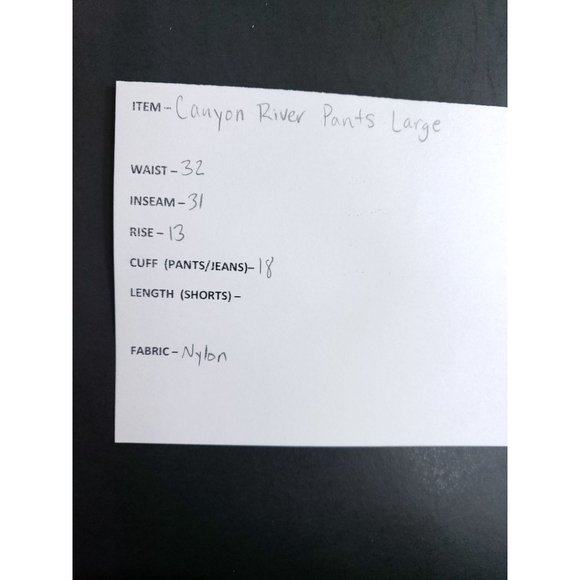 ITEM – Canyon River Pants Large
WAIST – 32
INSEAM – 31
RISE – 13
CUFF (PANTS/JEANS)– 18
LENGTH (SHORTS) –
FABRIC – Nylon